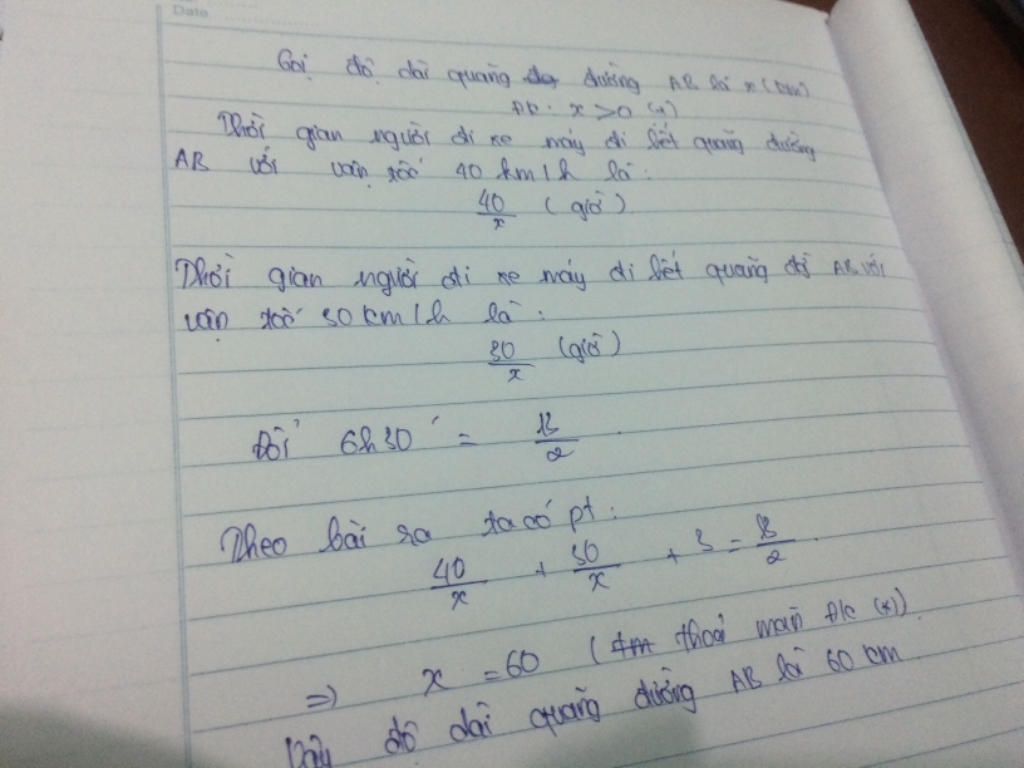 Date
Gọi độ dài quãng đường AB là x (km)
ĐK: x > 0 (*)
Thời gian người đi xe máy đi hết quãng đường
AB với vận tốc 40 km/h là:
40/x (giờ)
Thời gian người đi xe máy đi hết quãng đg AB với
vận tốc 30 km/h là:
30/x (giờ)
Đổi 6h30' = 13/2
Theo bài ra ta có pt:
40/x + 30/x + 3 = 13/2
=> x = 60 (thoả mãn ĐK (*))
Vậy độ dài quãng đường AB là 60 km